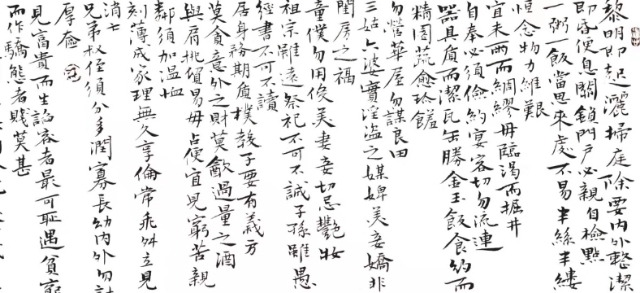 黎明即起灑掃庭除要内外整潔
即昏便息關鎖門户必親自檢點
一粥一飯當思來處不易半絲半縷
恒念物力維艱
宜未雨而綢繆毋臨渴而掘井
自奉必須儉約宴客切勿流連
器具質而潔瓦缶勝金玉飯食約而
精園蔬愈珍饈
勿營華屋勿謀良田
三姑六婆實淫盗之媒婢美妾嬌非
閨房之福
童僕勿用俊美妻妾切忌艷妝
祖宗雖遠祭祀不可不誠子孫雖愚
經書不可不讀
居身務期質樸教子要有義方
莫貪意外之財莫飲過量之酒
與肩挑貿易毋占便宜見窮苦親
鄰須加温恤
刻薄成家理無久享倫常乖舛立見
消亡
兄弟叔侄須分多潤寡長幼内外勿計
厚奩
見富貴而生諂容者最可恥遇貧窮
而作驕態者賤莫甚